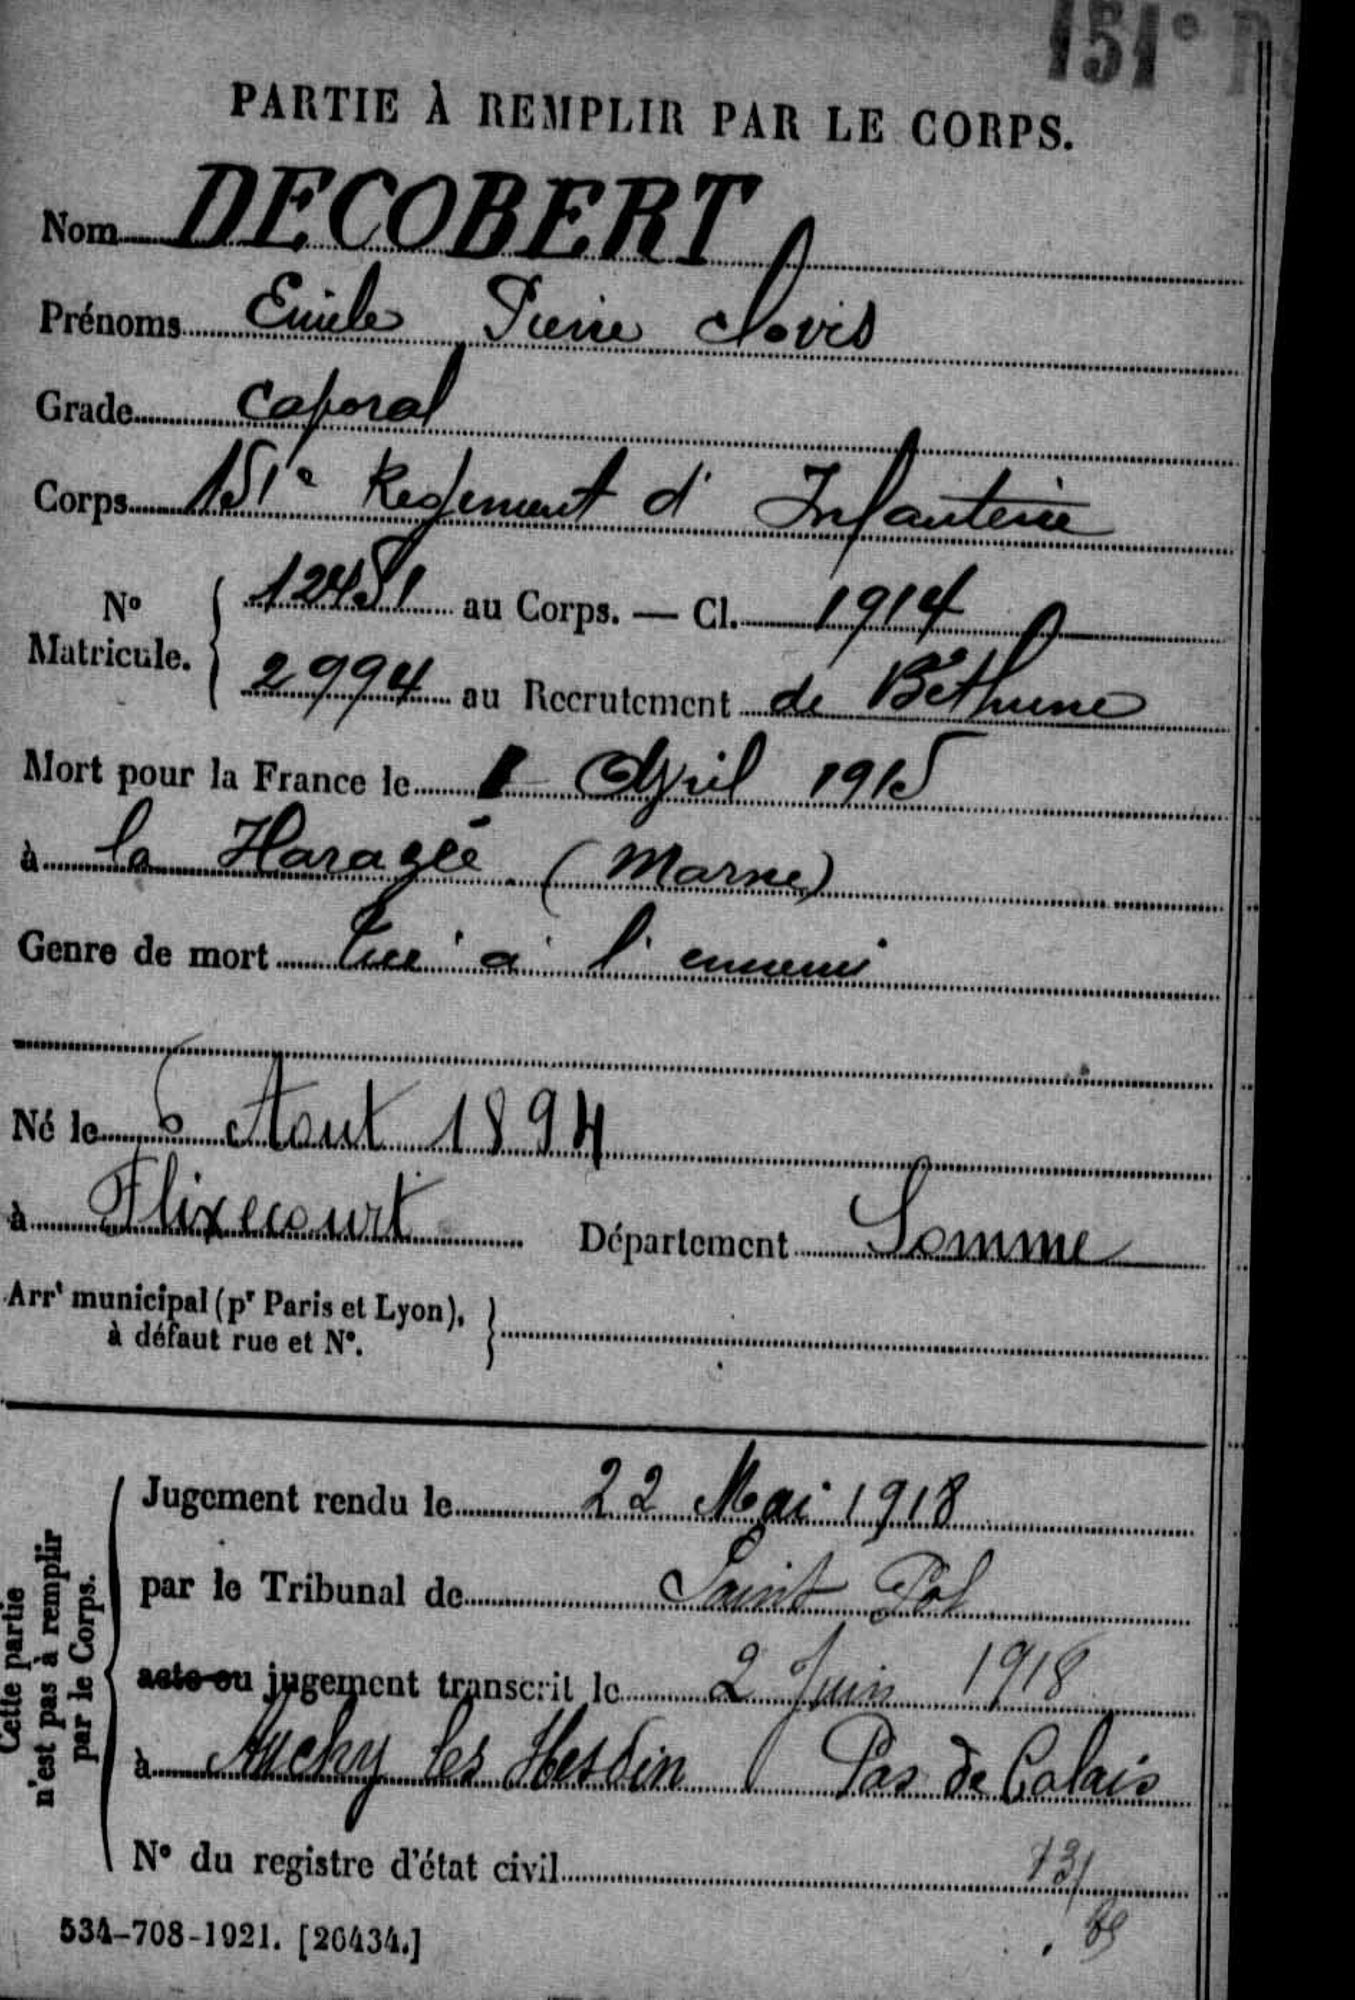 151e
PARTIE À REMPLIR PAR LE CORPS.
Nom DECOBERT
Prénoms Emile Pierre Clovis
Grade Caporal
Corps 151e Regiment d' Infanterie
No Matricule. { 12481 au Corps. — Cl. 1914
2994 au Recrutement de Béthune
Mort pour la France le 1 Avril 1915
à la Harazée (Marne)
Genre de mort tué à l'ennemi
Né le 6 Aout 1894
à Flixecourt Département Somme
Arrt municipal (pr Paris et Lyon),
à défaut rue et No.
Cette partie
n'est pas à remplir
par le Corps.
Jugement rendu le 22 Mai 1918
par le Tribunal de Saint Pol
acte ou jugement transcrit le 2 Juin 1918
à Auchy les Hesdin Pas de Calais
No du registre d'état civil
534-708-1921. [26434.]